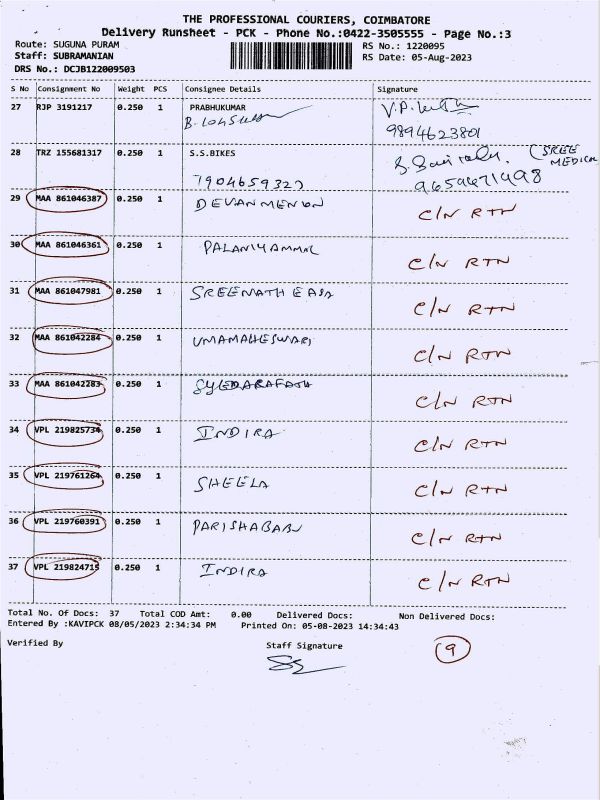 THE PROFESSIONAL COURIERS, COIMBATORE
Delivery Runsheet - PCK - Phone No.:0422-3505555 - Page No.:3
Route: SUGUNA PURAM RS No.: 1220095
Staff: SUBRAMANIAN RS Date: 05-Aug-2023
DRS No.: DCJB122009503
S No Consignment No Weight PCS Consignee Details Signature
27 RJP 3191217 0.250 1 PRABHUKUMAR
9894623801
28 TRZ 155681317 0.250 1 S.S.BIKES (SREE
MEDICAL
7904659327 9659671498
29 MAA 861046387 0.250 1 DEVAN MENON C/N RTN
30 MAA 861046361 0.250 1 PALANIYAMMAL C/N RTN
31 MAA 861047981 0.250 1 SREENATH EASA C/N RTN
32 MAA 861042284 0.250 1 UMAMAHESWARI C/N RTN
33 MAA 861042283 0.250 1 SYEDARAFATH C/N RTN
34 VPL 219825734 0.250 1 INDIRA C/N RTN
35 VPL 219761264 0.250 1 SHEELA C/N RTN
36 VPL 219760391 0.250 1 PARISHABABU C/N RTN
37 VPL 219824715 0.250 1 INDIRA C/N RTN
Total No. Of Docs: 37 Total COD Amt: 0.00 Delivered Docs: Non Delivered Docs:
Entered By :KAVIPCK 08/05/2023 2:34:34 PM Printed On: 05-08-2023 14:34:43
Verified By Staff Signature 9